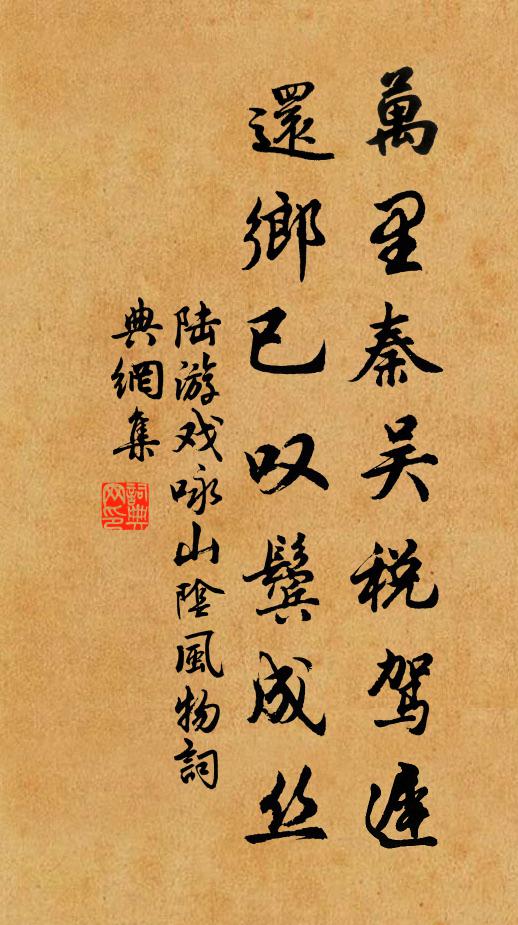 萬里秦吴税駕遲
還鄉已叹鬓成丝
陆游戏咏山陰風物詞
典網集
詞典网印